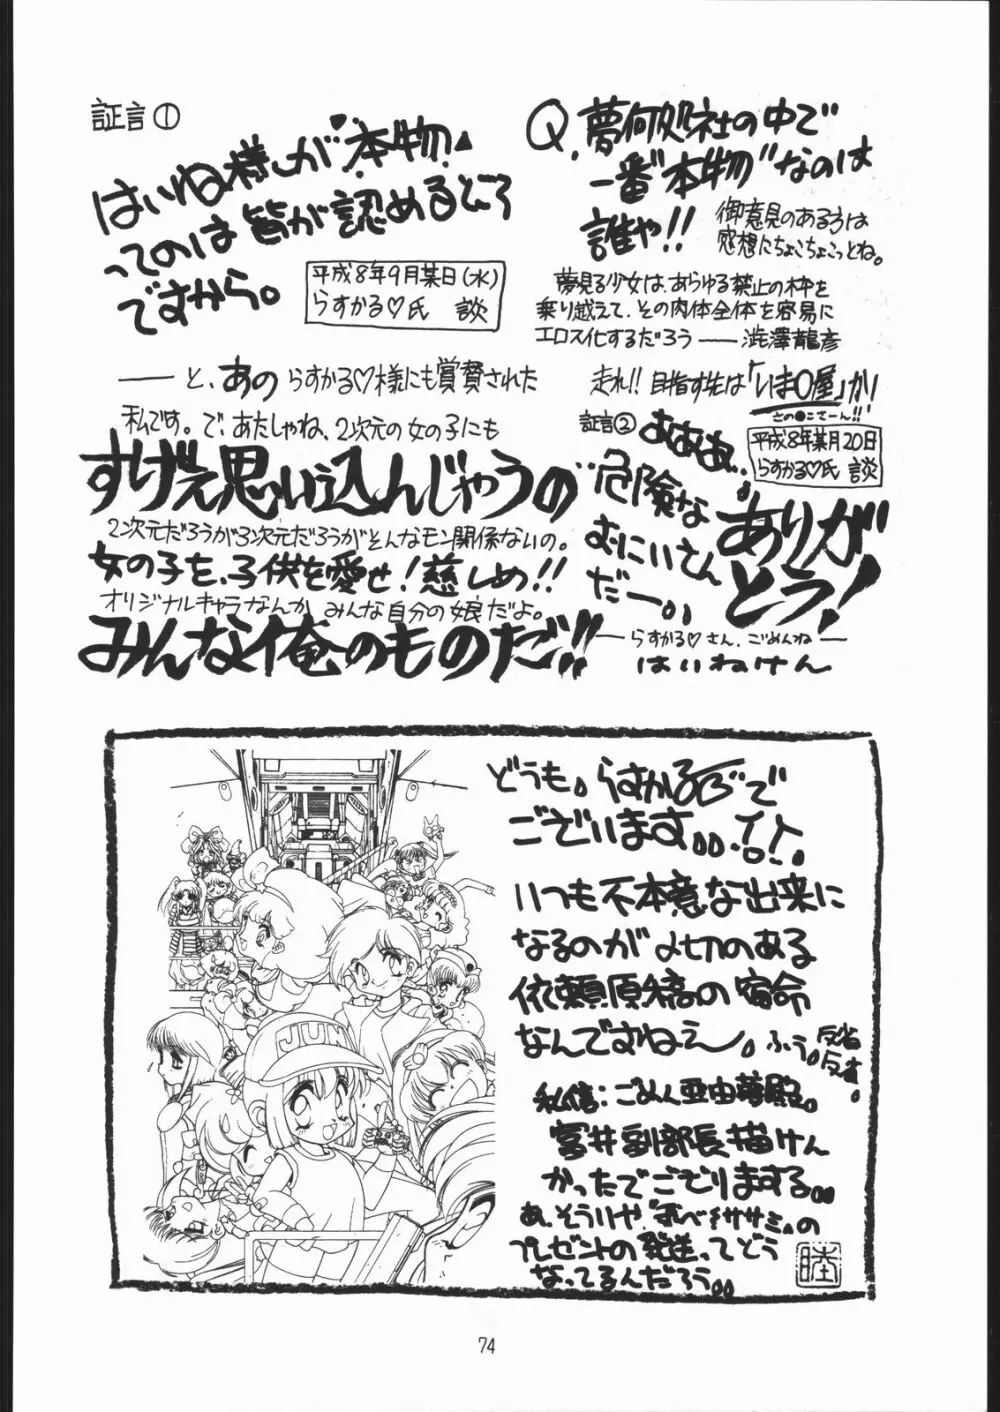 証言①
はいね様が“本物”
ってのは皆が認めるところ
ですから。
平成8年9月某日(水)
らすかる♡氏 談
Q.夢何処社の中で
一番“本物”なのは
誰や!!
御意見のある方は
感想にちょこちょこっとね。
夢見る少女は、あらゆる禁止の枠を
乗り越えて、その肉体全体を容易に
エロス化するだろう ── 澁澤龍彦
── と、あの らすかる♡様にも賞賛された
私です。で、あたしゃね、2次元の女の子にも
すげえ思い込んじゃうの
2次元だろうが3次元だろうがそんなモン関係ないの。
女の子を、子供を愛せ!慈しめ!!
オリジナルキャラなんか、みんな自分の娘だよ。
みんな俺のものだ!!
走れ!! 目指す先は「いま〇屋」か!
さの●こさーん!!
証言②
平成8年某月20日
らすかる♡氏 談
あああ、、
危険な
おにいさん
だー。。
ありが
とう!
── らすかる♡さん、ごめんね ──
はいねけん
JUN
どうも。らすかるで
ございます。。
いつも不本意な出来に
なるのが〆切のある
依頼原稿の宿命
なんですねえ〜。ふう。
反省
反省。
私信:ごめん亜由夢殿。
宮井副部長描けん
かったでござりまする。。
あ、そういや“すべ〜ササミ”の
プレゼントの発送ってどう
なってるんだろう。。
睦
74